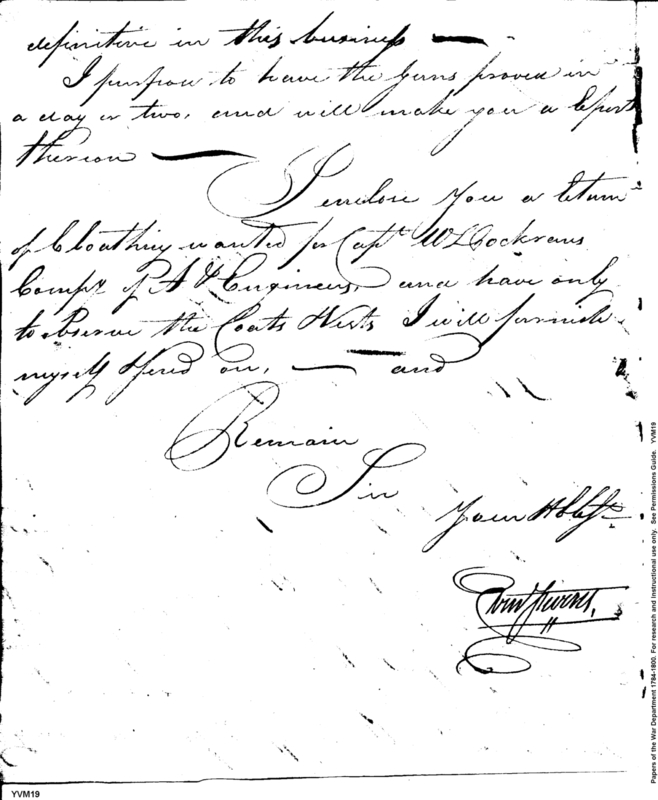 definitive in this business —
I purpose to have the Guns proved in
a day or two, and will make you a Report
thereon —
I enclose You a Return
of Cloathing wanted for Capt. Cockrans
Compy. of A & Engineers, and have only
to observe the Coats Vests I will furnish
myself & send on, — and
Remain
Sir
Your Hble St.
YVM19
Papers of the War Department 1784-1800. For research and instructional use only. See Permissions Guide. YVM19